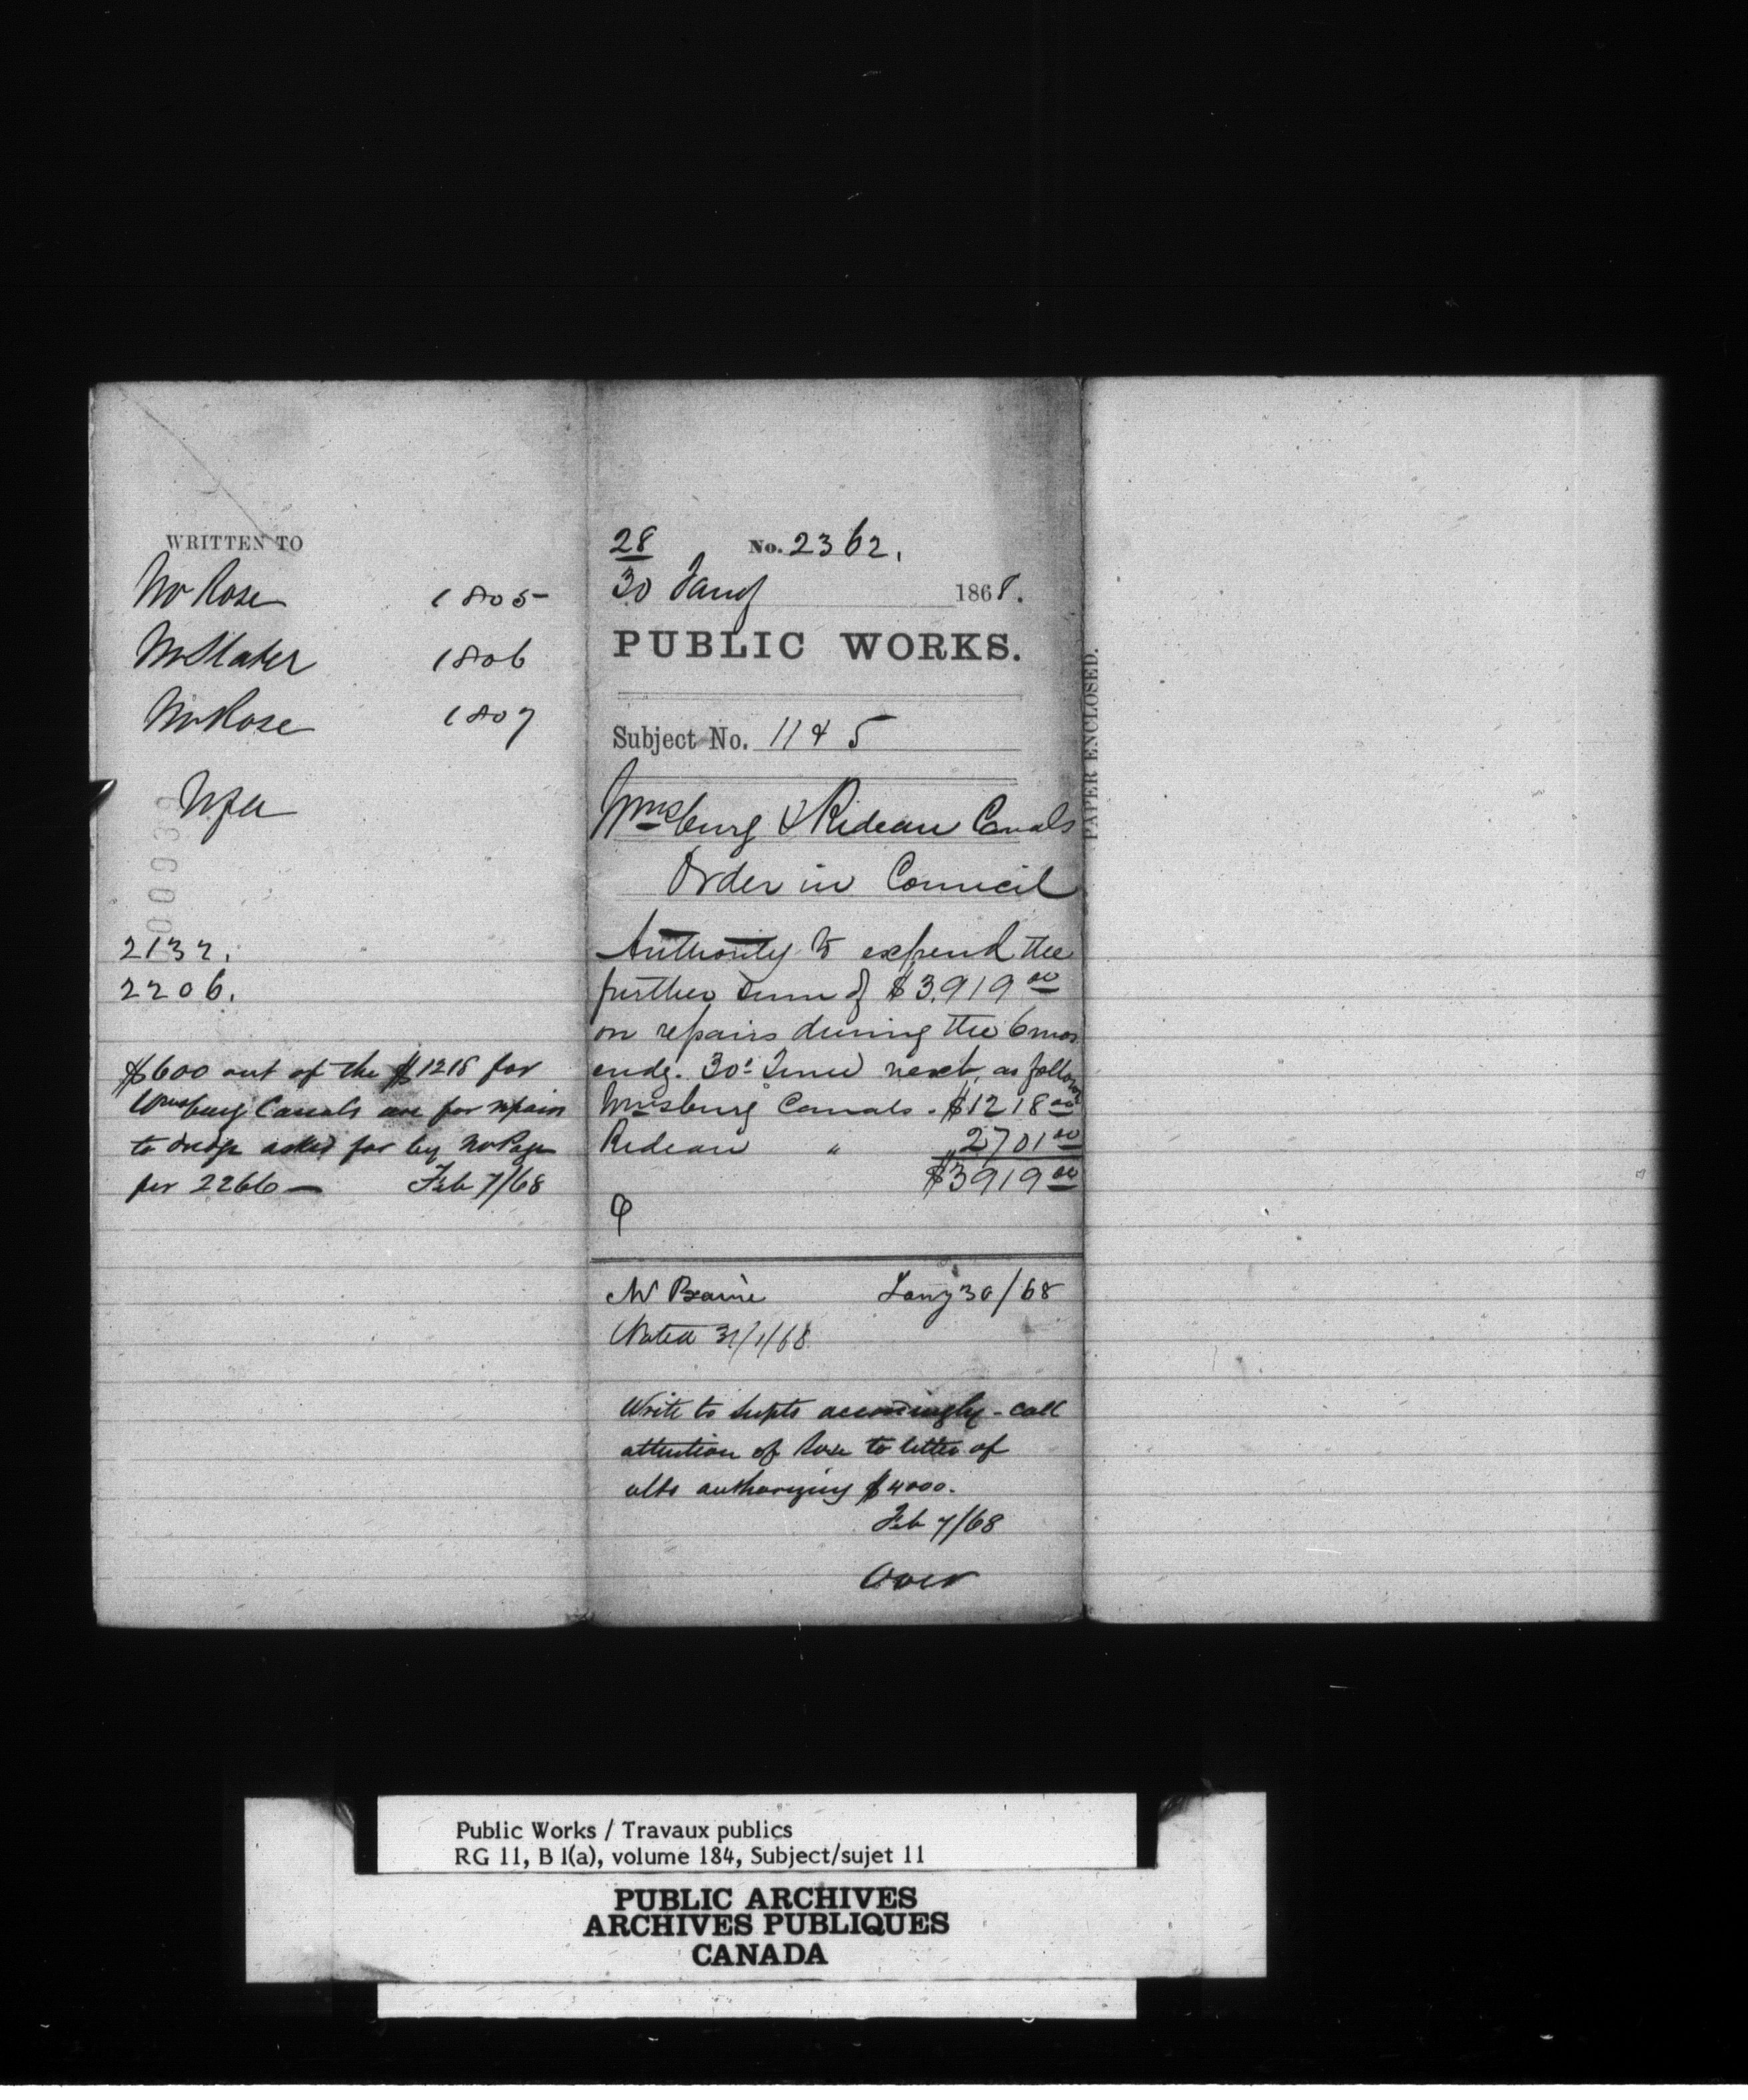 WRITTEN TO
Mr Rose 1805
Mr Slater 1806
Mr Rose 1807
2132.
2206.
$600 out of the $1218 for
Wmsburg Canals are for repairs
to dredge asked for by Mr Page
per 2266 — Feb 7/68
28 No. 2362.
30 Jany 1868.
PUBLIC WORKS.
Subject No. 11 & 5
Wmsburg & Rideau Canals
Order in Council
Authority to expend the
further sum of $3,919 00
on repairs during the 6 mos
endg. 30t June next, as follows
Wmsburg Canals. $1218 00
Rideau " 2701 00
$3919 00
Mr Baine Jany 30/68
Noted 31/1/68
Write to supts accordingly - call
attention of Rose to letter of
authorizing $4000.
Feb 7/68
Over
PAPER ENCLOSED.
Public Works / Travaux publics
RG 11, B 1(a), volume 184, Subject/sujet 11
PUBLIC ARCHIVES
ARCHIVES PUBLIQUES
CANADA